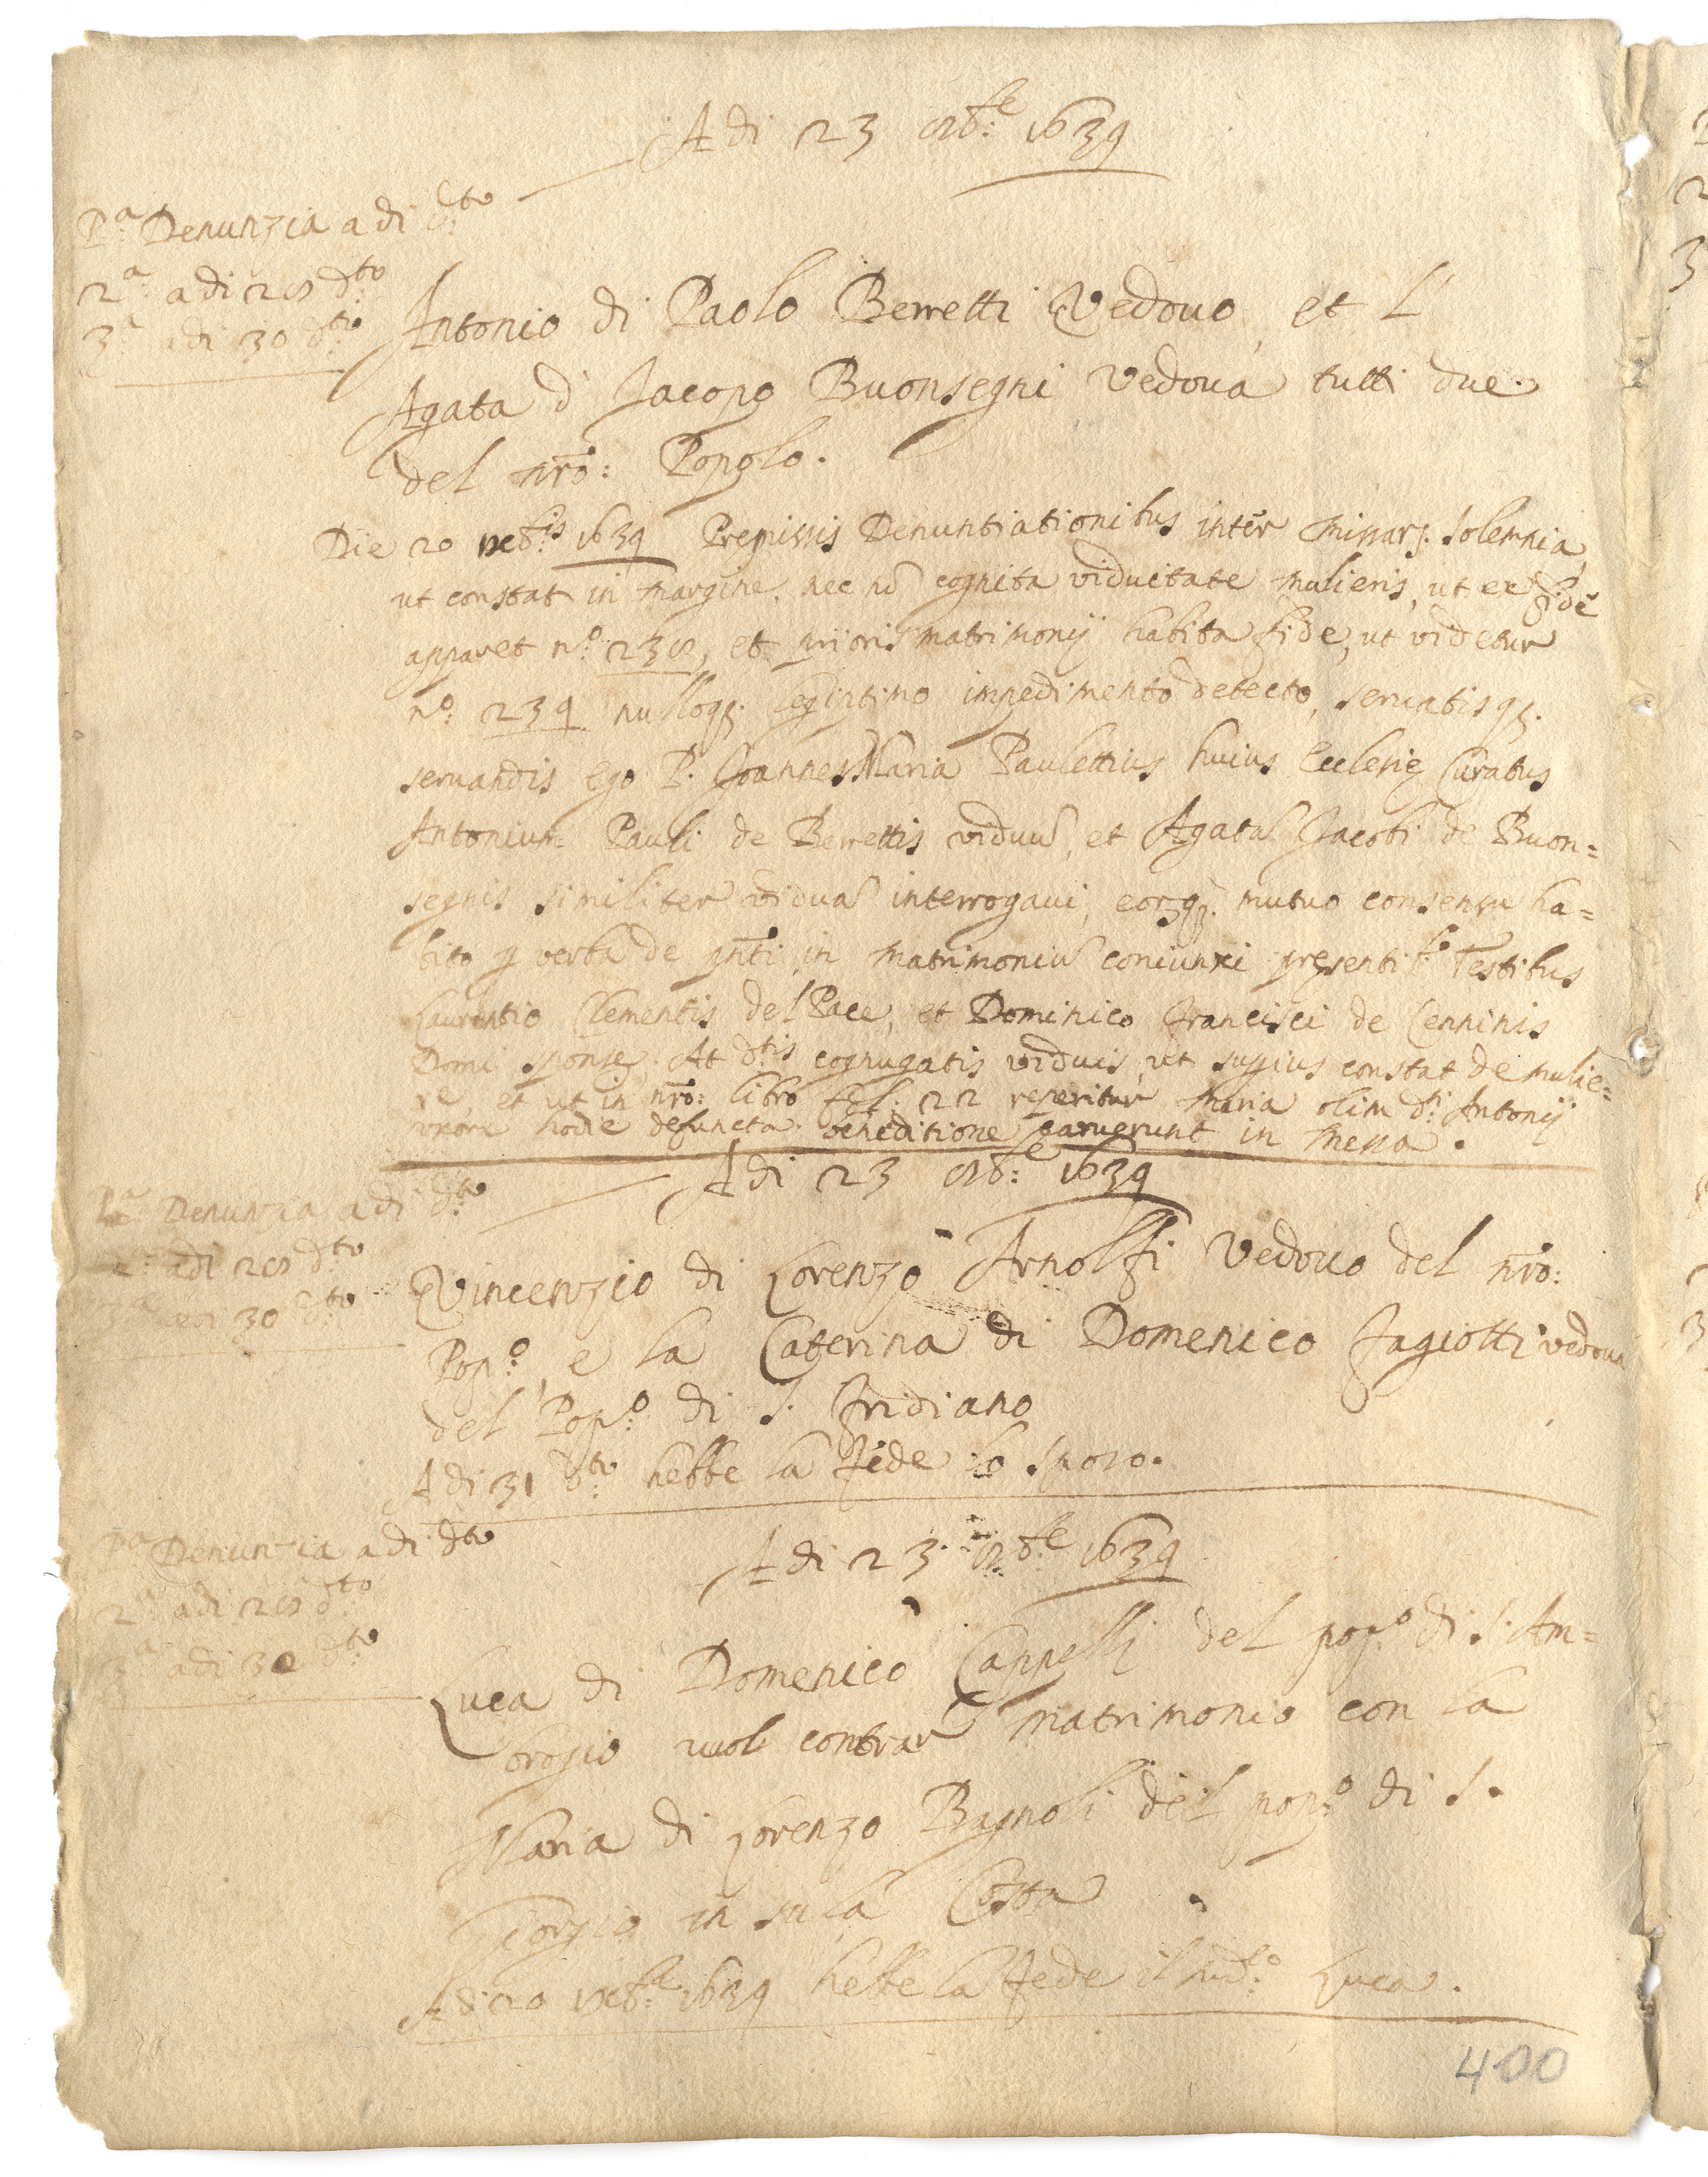 A di 23 8bre 1639
Pa Denunzia a di dto
2a a di 28 dto
3a a di 30 dto
Antonio di Paolo Berretti Vedovo, et L'
Agata d' Jacopo Buonsegni Vedova tutti due
del nro: Popolo.
Die 20 xcbris 1639 Premissis Denuntiationibus inter missarz. solemnia,
ut constat in margine, nec nō cognita viduitate mulieris, ut ex fide
apparet no: 238, et prioris matrimonij habita fide, ut videtur
no: 239 nulloqz. legiptimo impedimento detecto, servatisqz.
servandis Ego P. Joannes Maria Paulettius huius Ecclesię Curatus
Antonium Pauli de Berrettis viduū, et Agatā Jacobi de Buon=
segnis similiter viduā interrogavi, eorqz. mutuo consensu ha=
bito p verba de pnti in matrimoniū coniunxi presenti Testibus
Laurentio Clementis del Pace, et Dominico Francisci de Cenninis
Domi sponsę. At dtis cognugatis viduis, ut suppius constat de mulie=
re, et ut in nro: libro fol: 22 reperitur Maria olim di Antonij
uxore hodie defuncta. beneditione caruerunt in Messa.
A di 23 8bre 1639
Pa Denunzia a di dto
2a adi 28 dto
3a adi 30 dto
Vincenzio di Lorenzo Arnolfi Vedovo del nro:
Popo:, e la Caterina di Domenico Fagiotti vedova
del Popo: di S. Fridiano
A di 31 dto hebbe la fede lo sposo.
A di 23. 8bre 1639
Pa Denunzia a di dto
2a adi 28 dto
3a adi 30 dto
Luca di Domenico Cappelli del popo: di S. Am=
brogio vuol contrar matrimonio con la
Maria di Lorenzo Bagnoli del popo: di S.
Giorgio in su la Costa
A di 20 xcbre 1639 hebbe la fede il sudo: Luca.
400